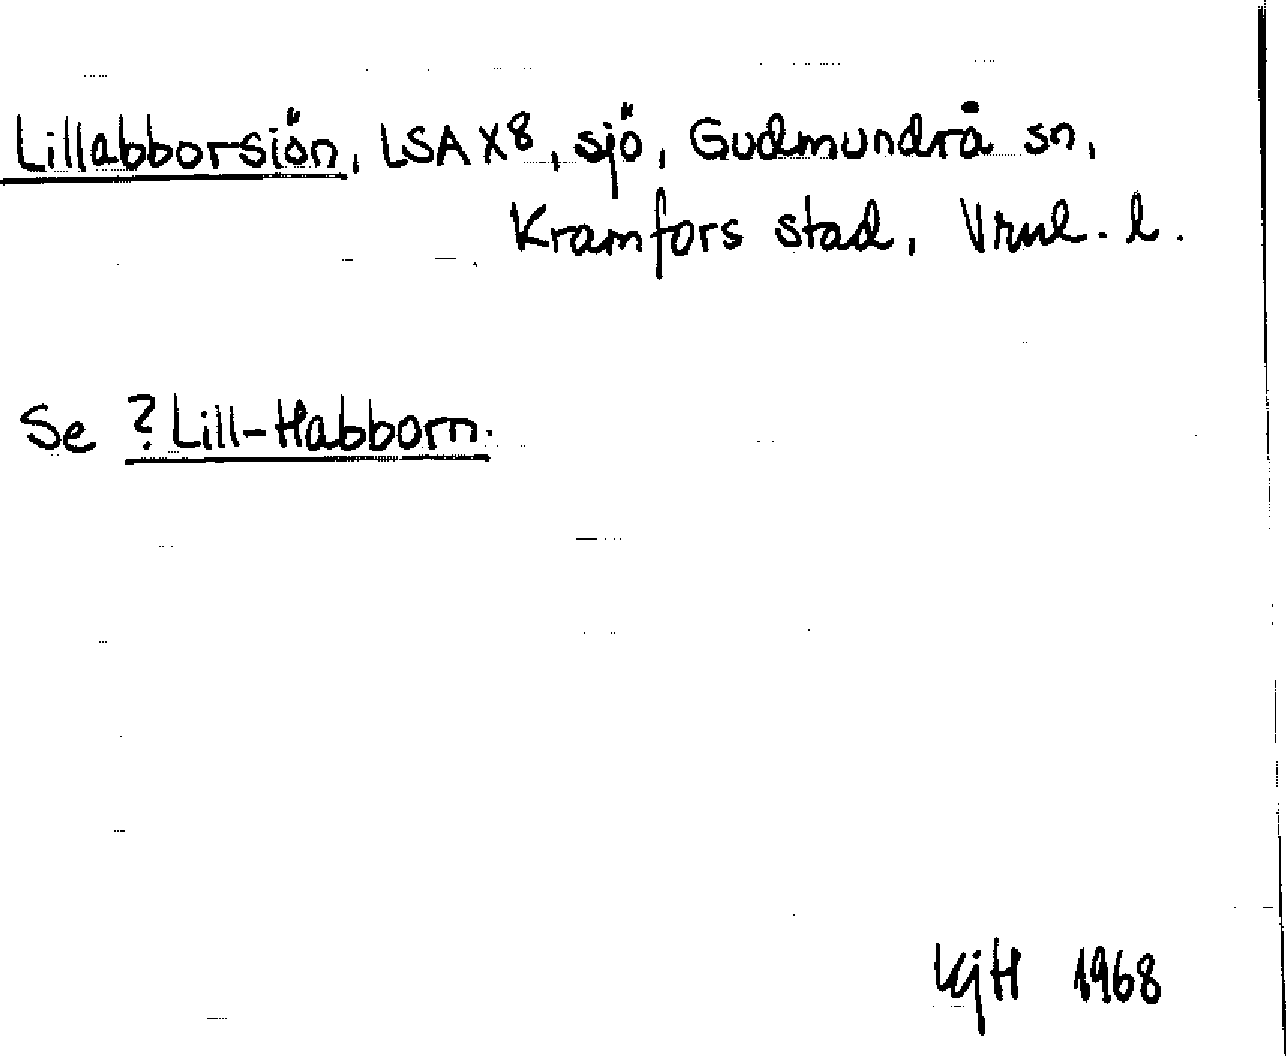 Lillabborsiön, LSA X8, sjö, Gudmundrå sn,
Kramfors stad, Vrnl. l.
Se ? Lill-Habborn.
KjH 1968